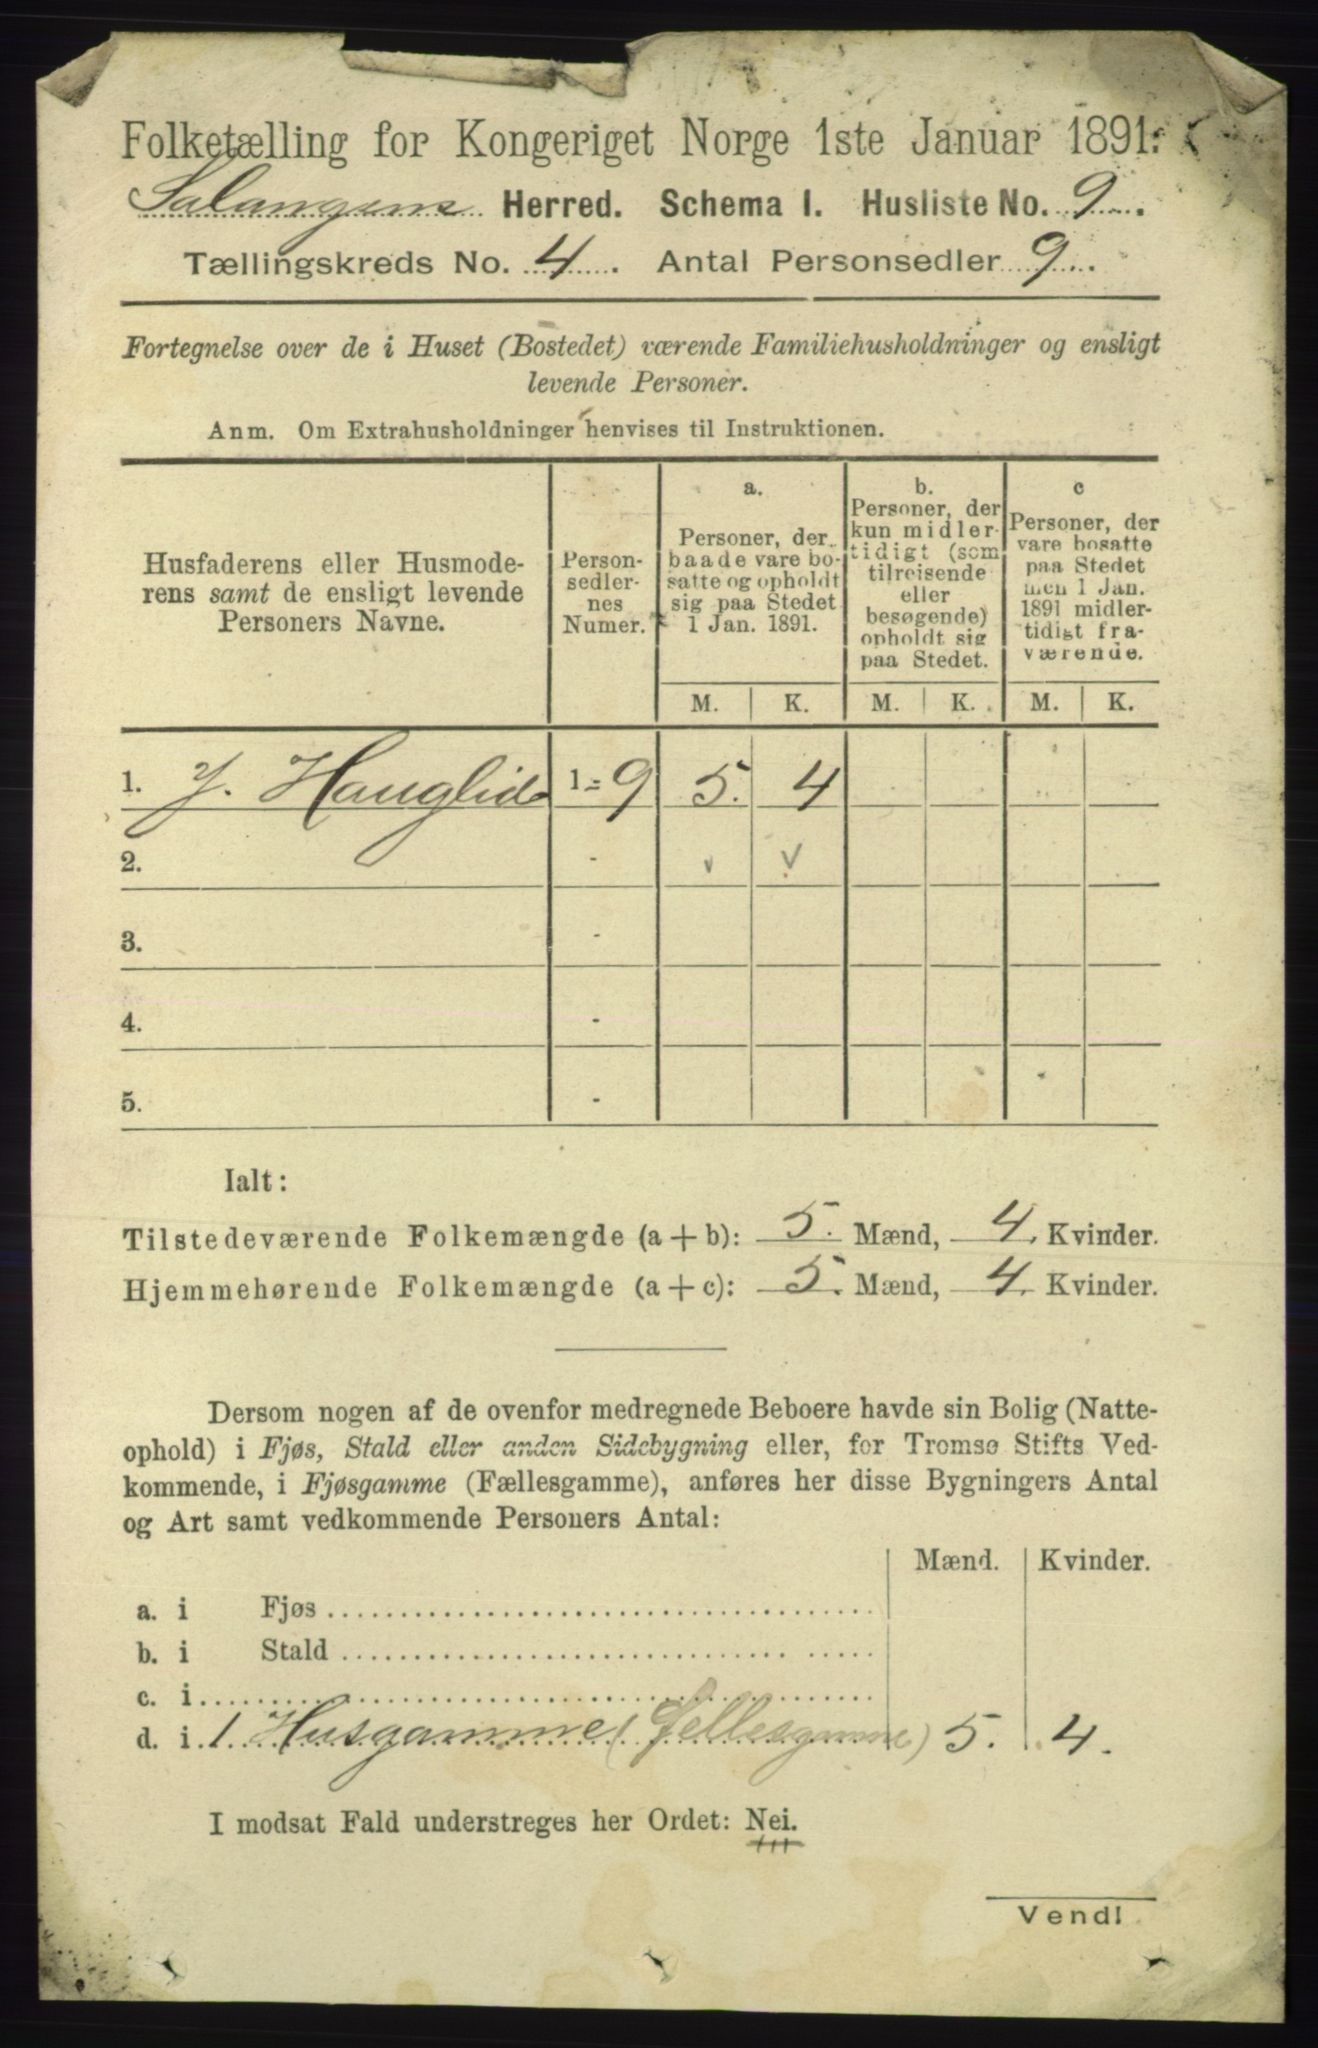 Folketælling for Kongeriget Norge 1ste Januar 1891.
Salangens Herred. Schema I. Husliste No. 9.
Tællingskreds No. 4. Antal Personsedler 9.
Fortegnelse over de i Huset (Bostedet) værende Familiehusholdninger og ensligt
levende Personer.
Anm. Om Extrahusholdninger henvises til Instruktionen.
Husfaderens eller Husmode-
rens samt de ensligt levende
Personers Navne.
Person-
sedler-
nes
Numer.
a.
Personer, der
baade vare bo-
satte og opholdt
sig paa Stedet
1 Jan. 1891.
b.
Personer, der
kun midler-
tidigt (som
tilreisende
eller
besøgende)
opholdt sig
paa Stedet.
c
Personer, der
vare bosatte
paa Stedet
men 1 Jan.
1891 midler-
tidigt fra-
værende.
M. K. M. K. M. K.
1. J. Hauglid 1 = 9 5. 4
2. - v v
3. -
4. -
5. -
Ialt:
Tilstedeværende Folkemængde (a + b): 5. Mænd, 4. Kvinder.
Hjemmehørende Folkemængde (a + c): 5. Mænd, 4. Kvinder.
Dersom nogen af de ovenfor medregnede Beboere havde sin Bolig (Natte-
ophold) i Fjøs, Stald eller anden Sidebygning eller, for Tromsø Stifts Ved-
kommende, i Fjøsgamme (Fællesgamme), anføres her disse Bygningers Antal
og Art samt vedkommende Personers Antal:
Mænd. Kvinder.
a. i Fjøs
b. i Stald
c. i
d. i 1 Husgamme (fellesgamme) 5. 4.
I modsat Fald understreges her Ordet: Nei.
Vend!